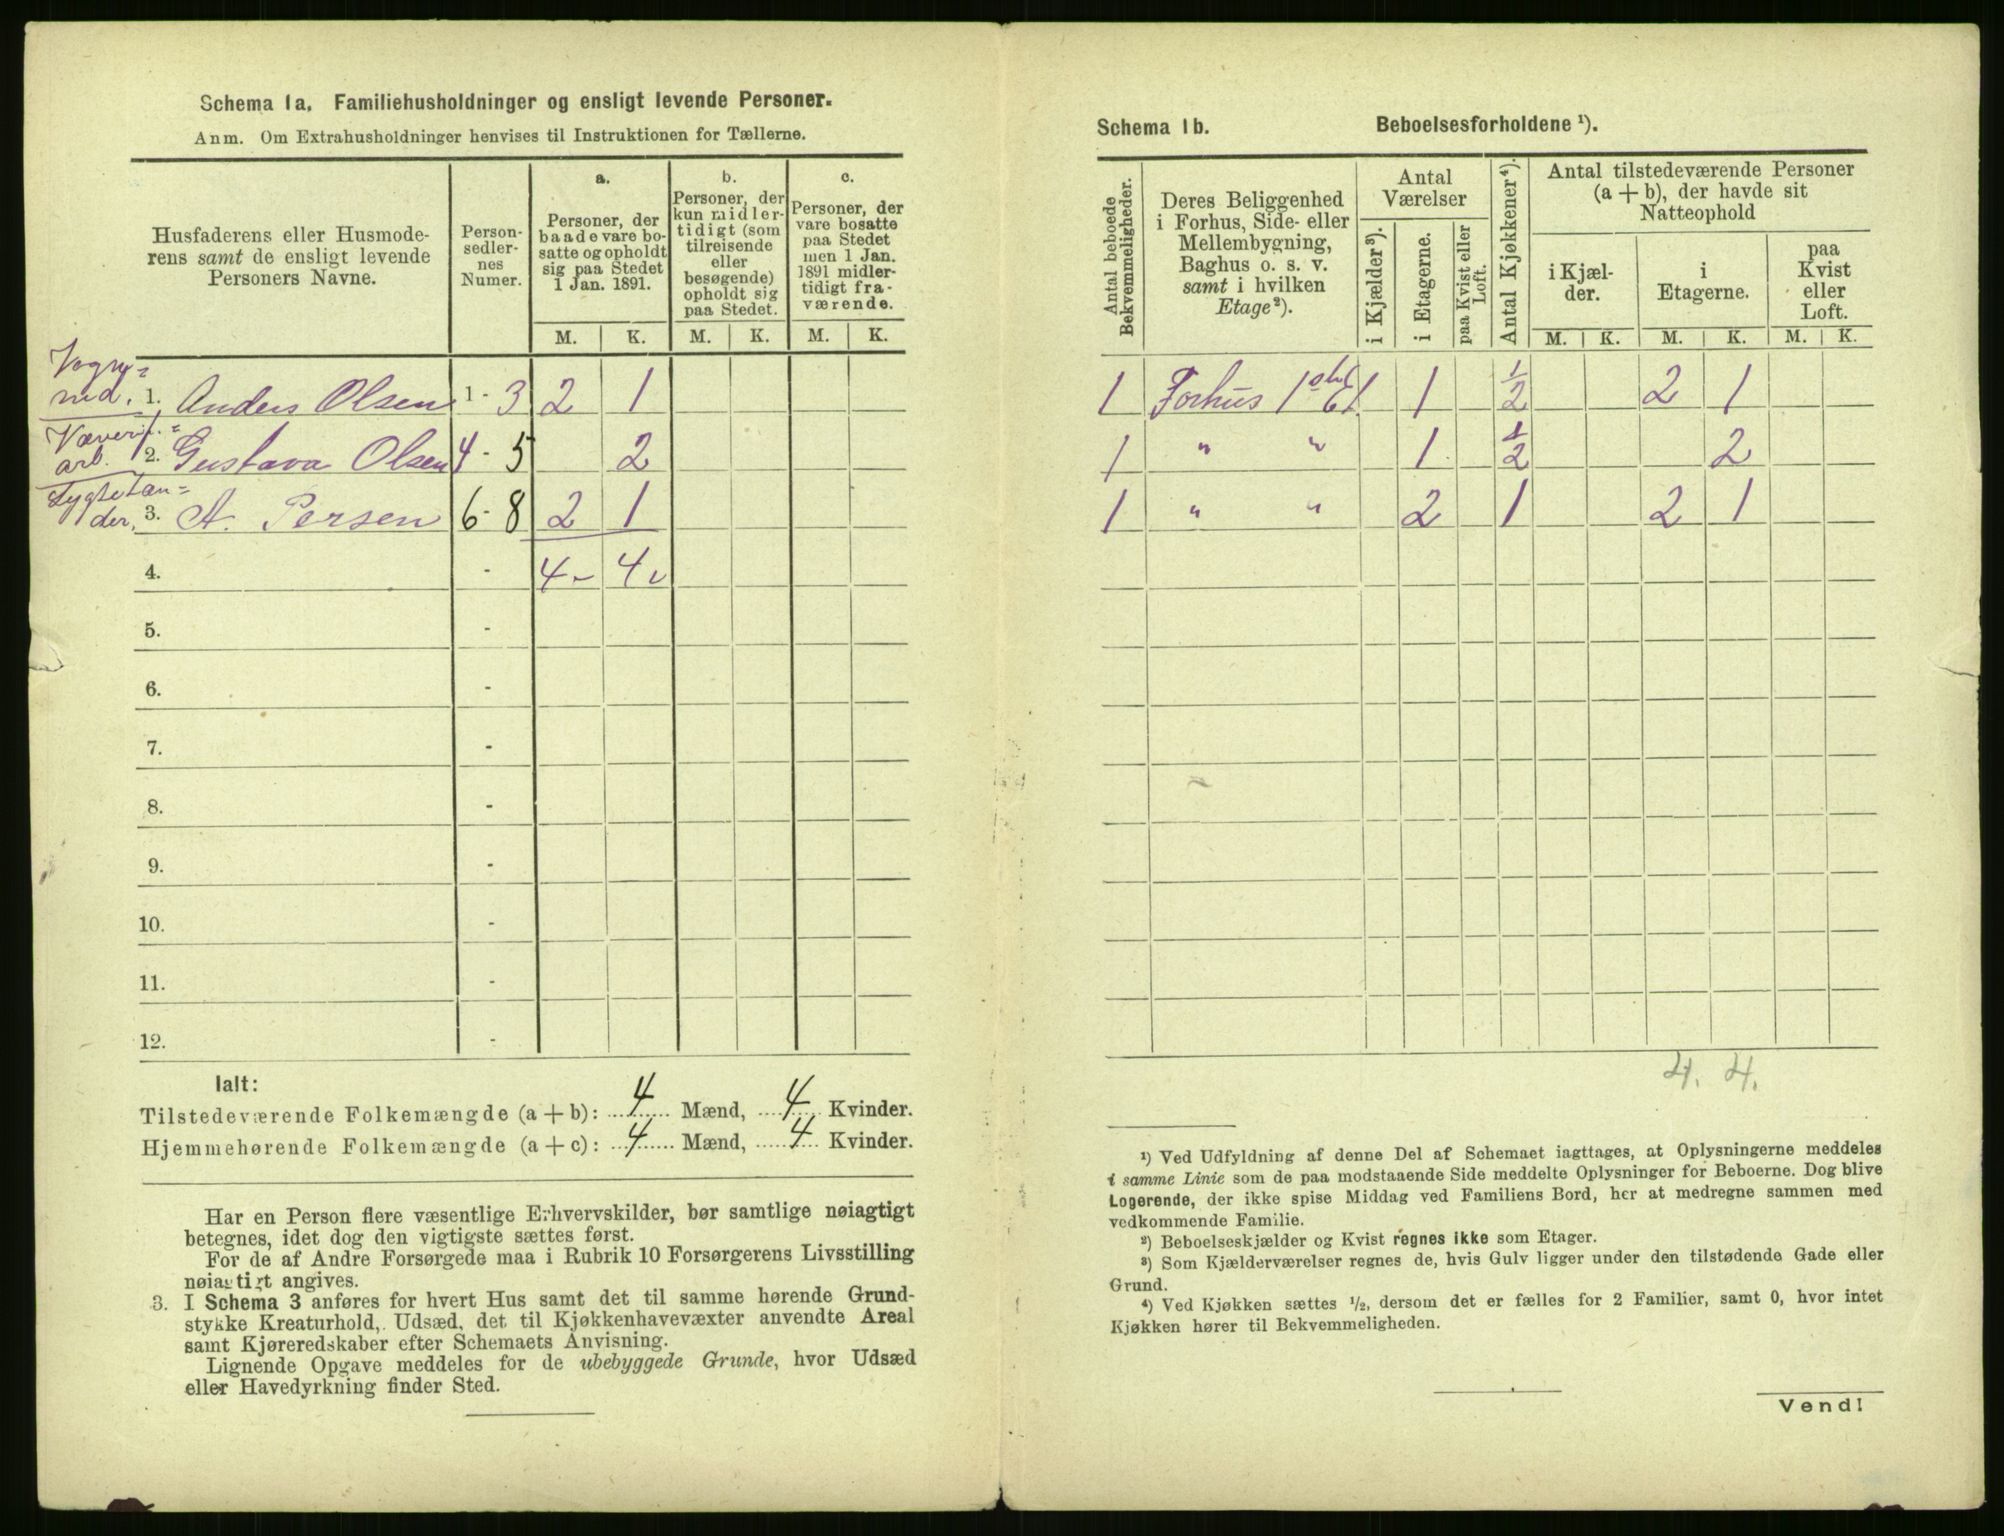 Schema 1a. Familiehusholdninger og ensligt levende Personer.
Anm. Om Extrahusholdninger henvises til Instruktionen for Tællerne.
Husfaderens eller Husmode-
rens samt de ensligt levende
Personers Navne.
Person-
sedler-
nes
Numer.
a.
Personer, der
baade vare bo-
satte og opholdt
sig paa Stedet
1 Jan. 1891.
b.
Personer, der
kun midler-
tidigt (som
tilreisende
eller
besøgende)
opholdt sig
paa Stedet.
c.
Personer, der
vare bosatte
paa Stedet
men 1 Jan.
1891 midler-
tidigt fra-
værende.
M. K. M. K. M. K.
Vogn=
md. 1. Anders Olsen 1 - 3 2 1
Væveri=
arb. 2. Gustava Olsen 4 - 5 2
Lygtetæn=
der, 3. A. Persen 6 - 8 2 1
4. - 4 4
5. -
6. -
7. -
8. -
9. -
10. -
11. -
12. -
Ialt:
Tilstedeværende Folkemængde (a + b): 4 Mænd, 4 Kvinder.
Hjemmehørende Folkemængde (a + c): 4 Mænd, 4 Kvinder.
Har en Person flere væsentlige Erhvervskilder, bør samtlige nøiagtigt
betegnes, idet dog den vigtigste sættes først.
For de af Andre Forsørgede maa i Rubrik 10 Forsørgerens Livsstilling
nøiagtigt angives.
3. I Schema 3 anføres for hvert Hus samt det til samme hørende Grund-
stykke Kreaturhold, Udsæd, det til Kjøkkenhavevæxter anvendte Areal
samt Kjøreredskaber efter Schemaets Anvisning.
Lignende Opgave meddeles for de ubebyggede Grunde, hvor Udsæd
eller Havedyrkning finder Sted.
Schema 1b. Beboelsesforholdene ¹).
Antal beboede
Bekvemmeligheder.
Deres Beliggenhed
i Forhus, Side- eller
Mellembygning,
Baghus o. s. v.
samt i hvilken
Etage²).
Antal
Værelser
i Kjælder³).
i Etagerne.
paa Kvist eller
Loft.
Antal Kjøkkener⁴).
Antal tilstedeværende Personer
(a + b), der havde sit
Natteophold
i Kjæl-
der.
i
Etagerne.
paa
Kvist
eller
Loft.
M. K. M. K. M. K.
1 Forhus 1ste Et 1 ½ 2 1
1 " " 1 ½ 2
1 " " 2 1 2 1
4. 4.
¹) Ved Udfyldning af denne Del af Schemaet iagttages, at Oplysningerne meddeles
i samme Linie som de paa modstaaende Side meddelte Oplysninger for Beboerne. Dog blive
Logerende, der ikke spise Middag ved Familiens Bord, her at medregne sammen med
vedkommende Familie.
²) Beboelseskjælder og Kvist regnes ikke som Etager.
³) Som Kjælderværelser regnes de, hvis Gulv ligger under den tilstødende Gade eller
Grund.
⁴) Ved Kjøkken sættes ½, dersom det er fælles for 2 Familier, samt 0, hvor intet
Kjøkken hører til Bekvemmeligheden.
Vend!